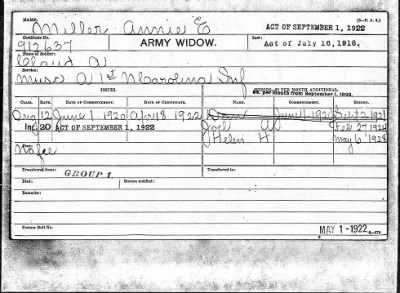 NAME:
Miller Annie E ACT OF SEPTEMBER 1, 1922
Certificate No. Law:
912637 ARMY WIDOW. Act of July 16, 1918.
Name of Soldier:
Claud A.
Service:
Musc A 1st N Carolina Inf
ISSUES. MINORS—$2 PER MONTH ADDITIONAL.
per month from September 1, 1922.
CLASS. RATE. DATE OF COMMENCEMENT. DATE OF CERTIFICATE. NAME. COMMENCEMENT. ENDING.
Org 12 June 1 1920 Apr 18 1922 June 1 1920 Sept 2 1921
Inc. 20 ACT OF SEPTEMBER 1, 1922 Joel A Feb 27 1924
Helen H May 6 1928
No fee
Transferred from: GROUP 1 Transferred to:
Died: Bureau notified:
Remarks:
Former Roll No. MAY 1-1922